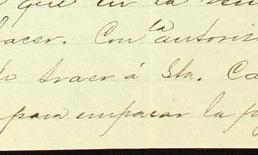 que en la
hacer. Con la autoriz
traer á Sta. Ca
para empacar la